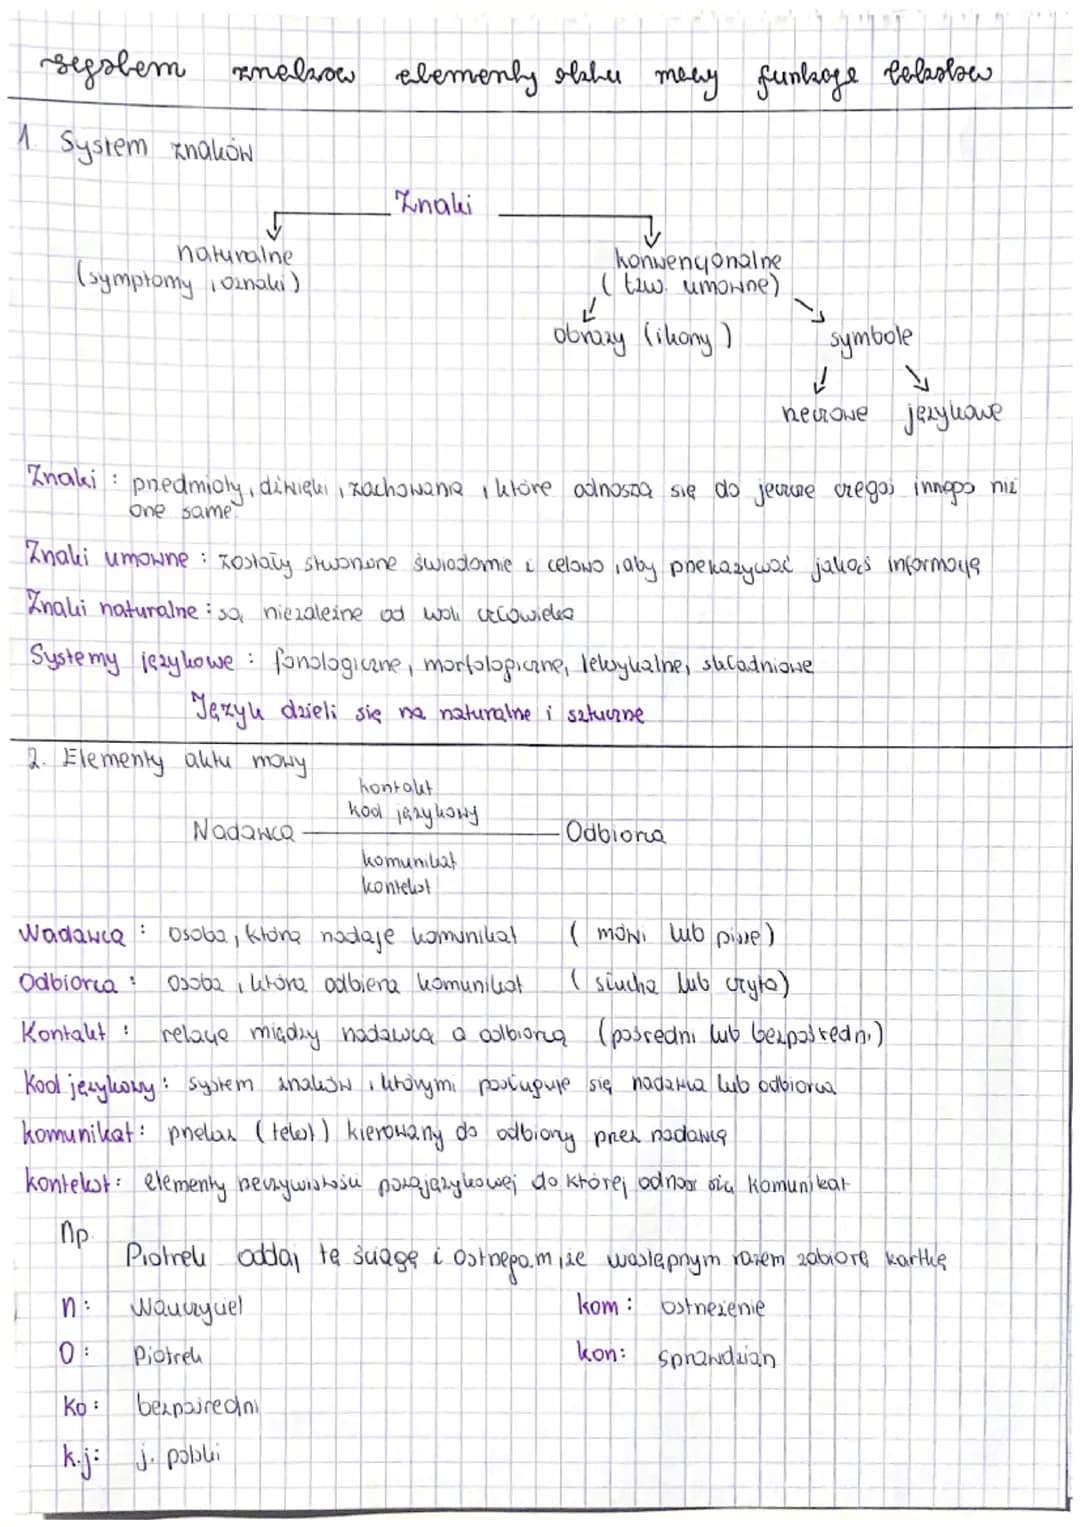 system znaków elementy aktu mowy funkcje tekstów
1. System znaków
Znaki
naturalne
(symptomy, oznaki)
konwencjonalne
(tzw. umowne)
obrazy (ikony)
symbole
rzeczowe językowe
Znaki: przedmioty, dźwięki, zachowania, które odnoszą się do jeszcze czegoś innego niż
one same
Znaki umowne: zostały stworzone świadomie i celowo, aby przekazywać jakąś informację
Znaki naturalne: są niezależne od woli człowieka
Systemy językowe: fonologiczne, morfologiczne, leksykalne, składniowe
Język dzieli się na naturalne i sztuczne
2. Elementy aktu mowy
kontakt
kod językowy
Nadawca Odbiorca
komunikat
kontekst
Nadawca: osoba, która nadaje komunikat (mówi lub pisze)
Odbiorca: osoba, która odbiera komunikat (słucha lub czyta)
Kontakt: relacje między nadawcą a odbiorcą (pośredni lub bezpośredni)
Kod językowy: system znaków, którymi posługuje się nadawca lub odbiorca
komunikat: przekaz (tekst) kierowany do odbiorcy przez nadawcę
kontekst: elementy rzeczywistości pozajęzykowej do której odnosi się komunikat
np.
Piotrek oddaj tę ściągę i ostrzegam, że następnym razem zabiorę kartkę
n: Nauczyciel kom: ostrzeżenie
O: Piotrek kon: sprawdzian
Ko: bezpośredni
k.j: j. polski